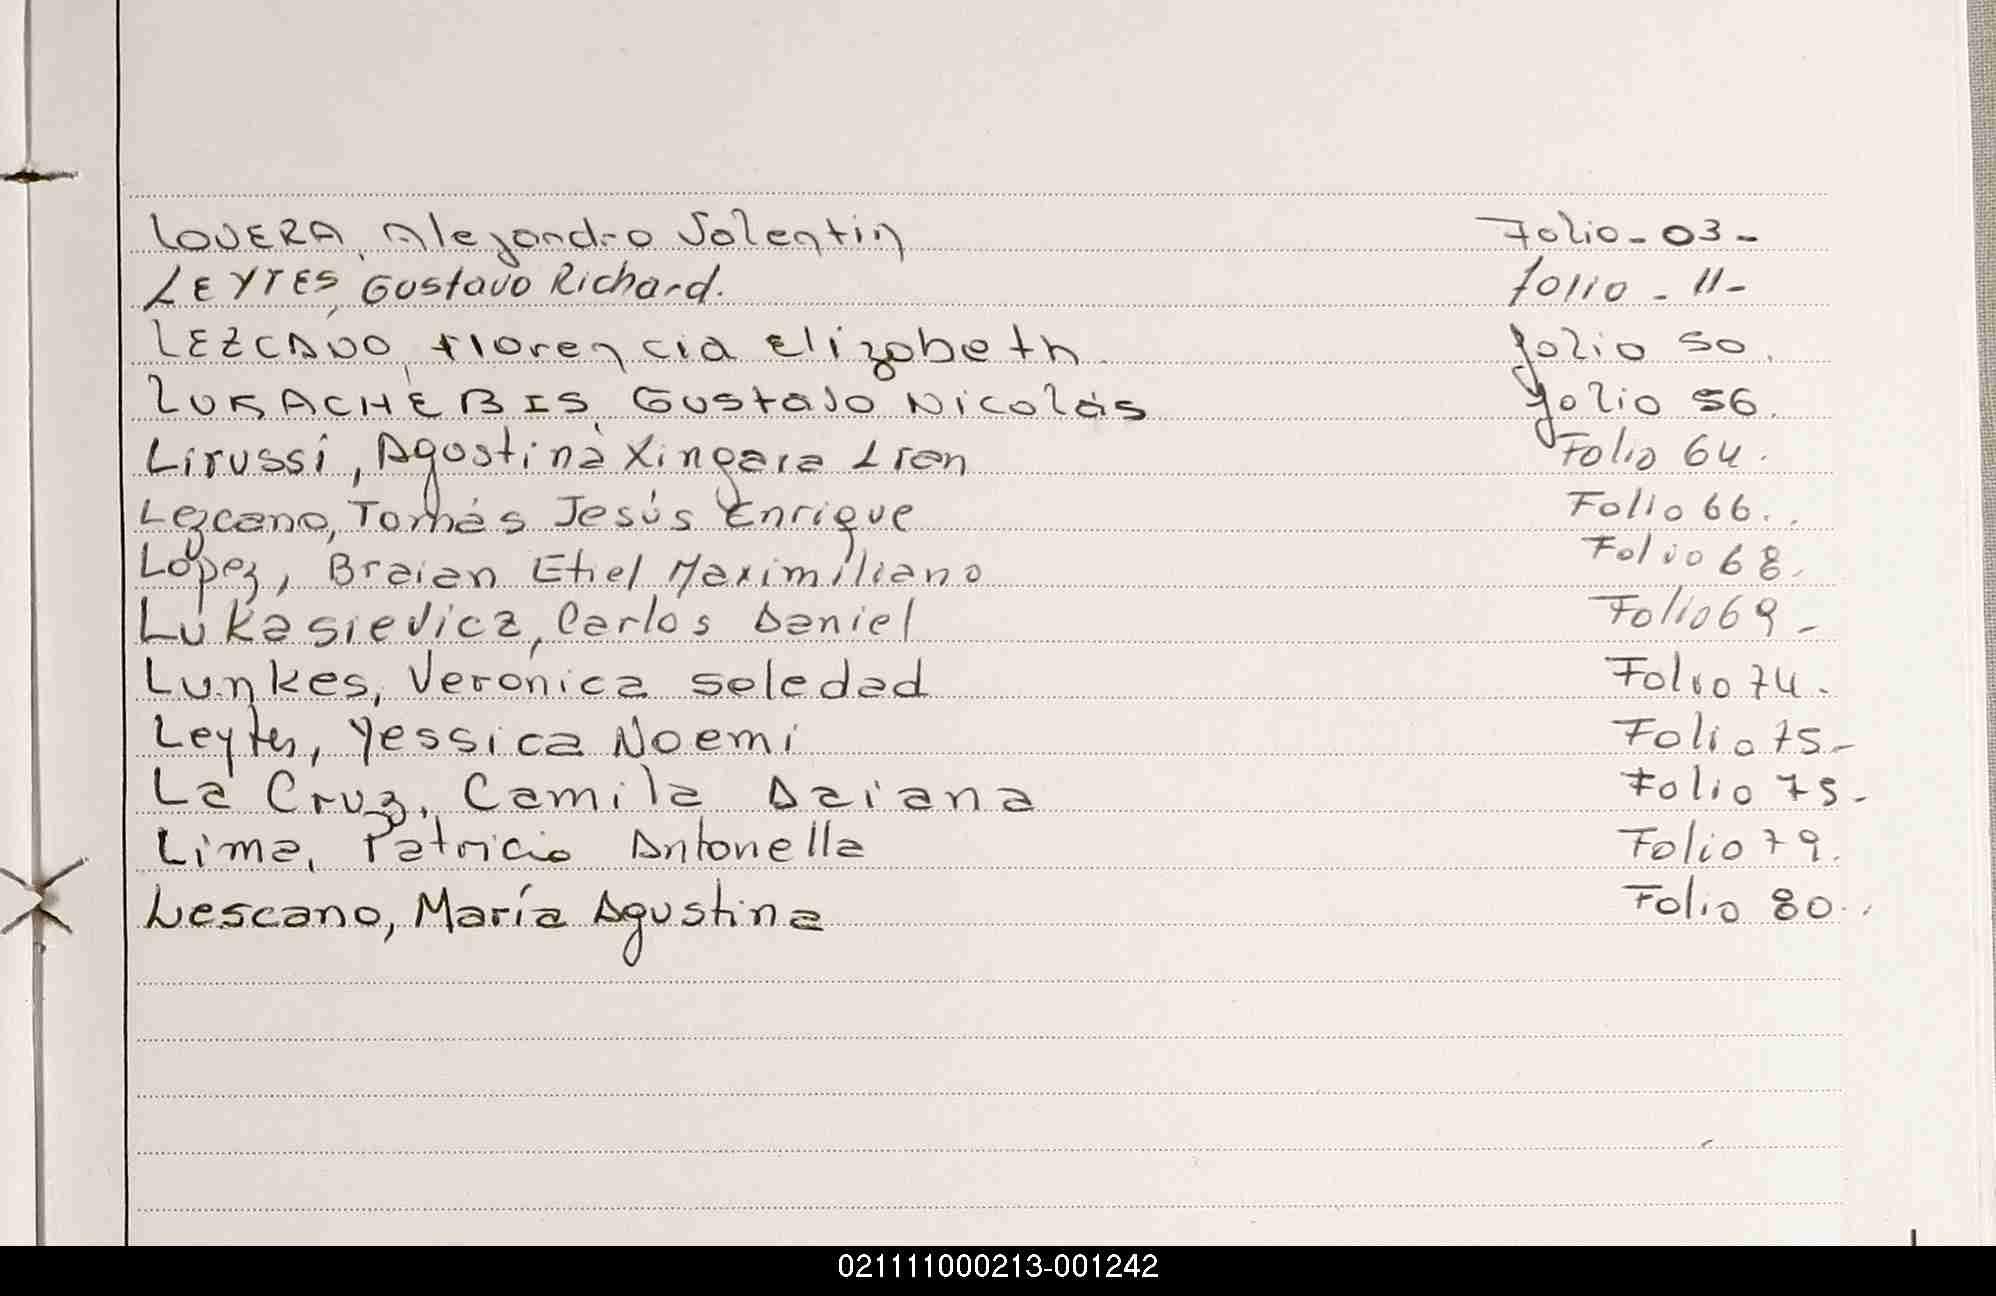 LOVERA, Alejandro Valentin Folio - 03 -
LEYTES, Gustavo Richard. folio - 11 -
LEZCANO, Florencia Elizabeth. folio 50.
LUKACHEBIS, Gustavo Nicolás folio 56.
Lirussi, Agostina Xingara Lian Folio 64.
Lezcano, Tomás Jesús Enrique Folio 66.
López, Braian Etiel Maximiliano Folio 68.
Lukasievicz, Carlos Daniel Folio 69 -
Lunkes, Verónica Soledad Folio 74.
Leytes, Yessica Noemi Folio 75 -
La Cruz, Camila Daiana Folio 75 -
Lima, Patricia Antonella Folio 79.
Lescano, María Agustina Folio 80.
021111000213-001242